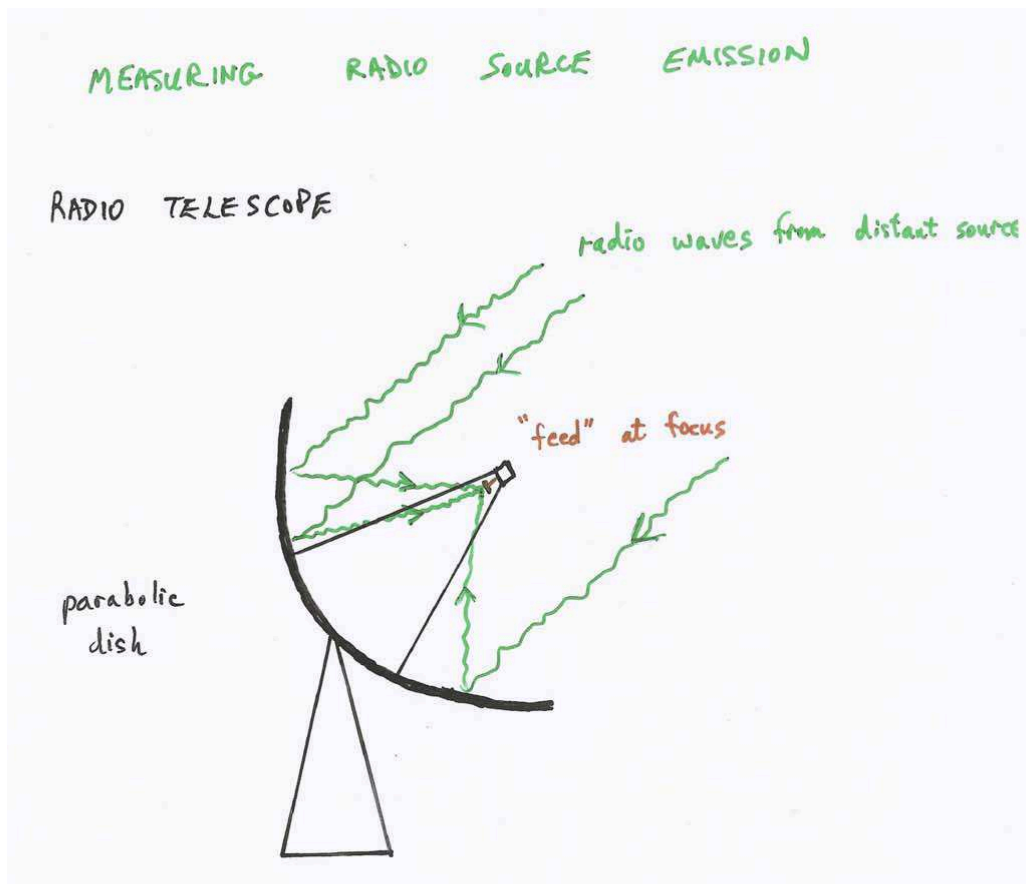 MEASURING RADIO SOURCE EMISSION
RADIO TELESCOPE
radio waves from distant source
"feed" at focus
parabolic
dish